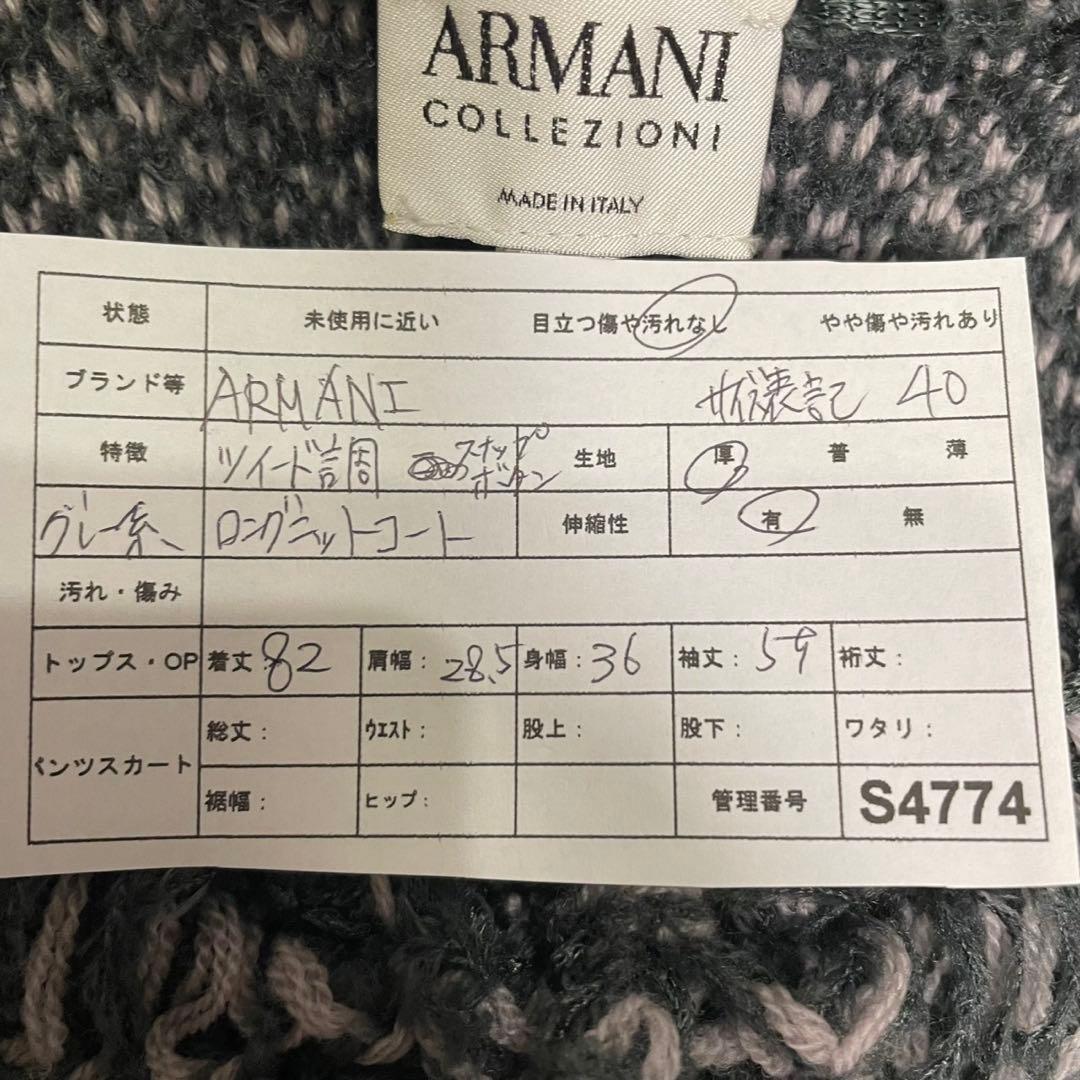 ARMANI
COLLEZIONI
MADE IN ITALY
状態 未使用に近い 目立つ傷や汚れなし やや傷や汚れあり
ブランド等 ARMANI サイズ表記 40
特徴 ツイード調 スナップボタン 生地 厚 普 薄
グレー系 ロングニットコート 伸縮性 有 無
汚れ・傷み
トップス・OP 着丈:82 肩幅:28.5 身幅:36 袖丈:59 裄丈:
パンツスカート 総丈: ウエスト: 股上: 股下: ワタリ:
裾幅: ヒップ: 管理番号 S4774